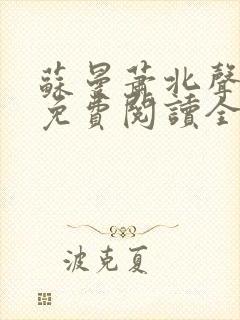 蘇曼蕭北聲
免費閱讀全
波克夏